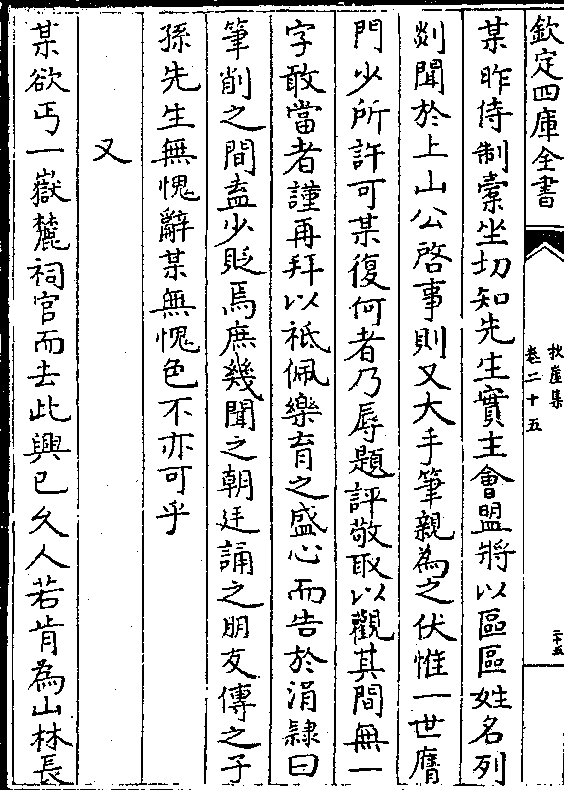 欽定四庫全書
秋崖集
卷二十五
二十五
某昨侍制橐坐切知先生實主會盟將以區區姓名列
剡聞於上山公啓事則又大手筆親為之伏惟一世膺
門少所許可某復何者乃辱題評敬取以觀其間無一
字敢當者謹再拜以祗佩樂育之盛心而告於涓隸曰
筆削之間盍少貶焉庶幾聞之朝廷誦之朋友傳之子
孫先生無愧辭某無愧色不亦可乎
又
某欲丐一嶽麓祠官而去此興已久人若肯為山林長